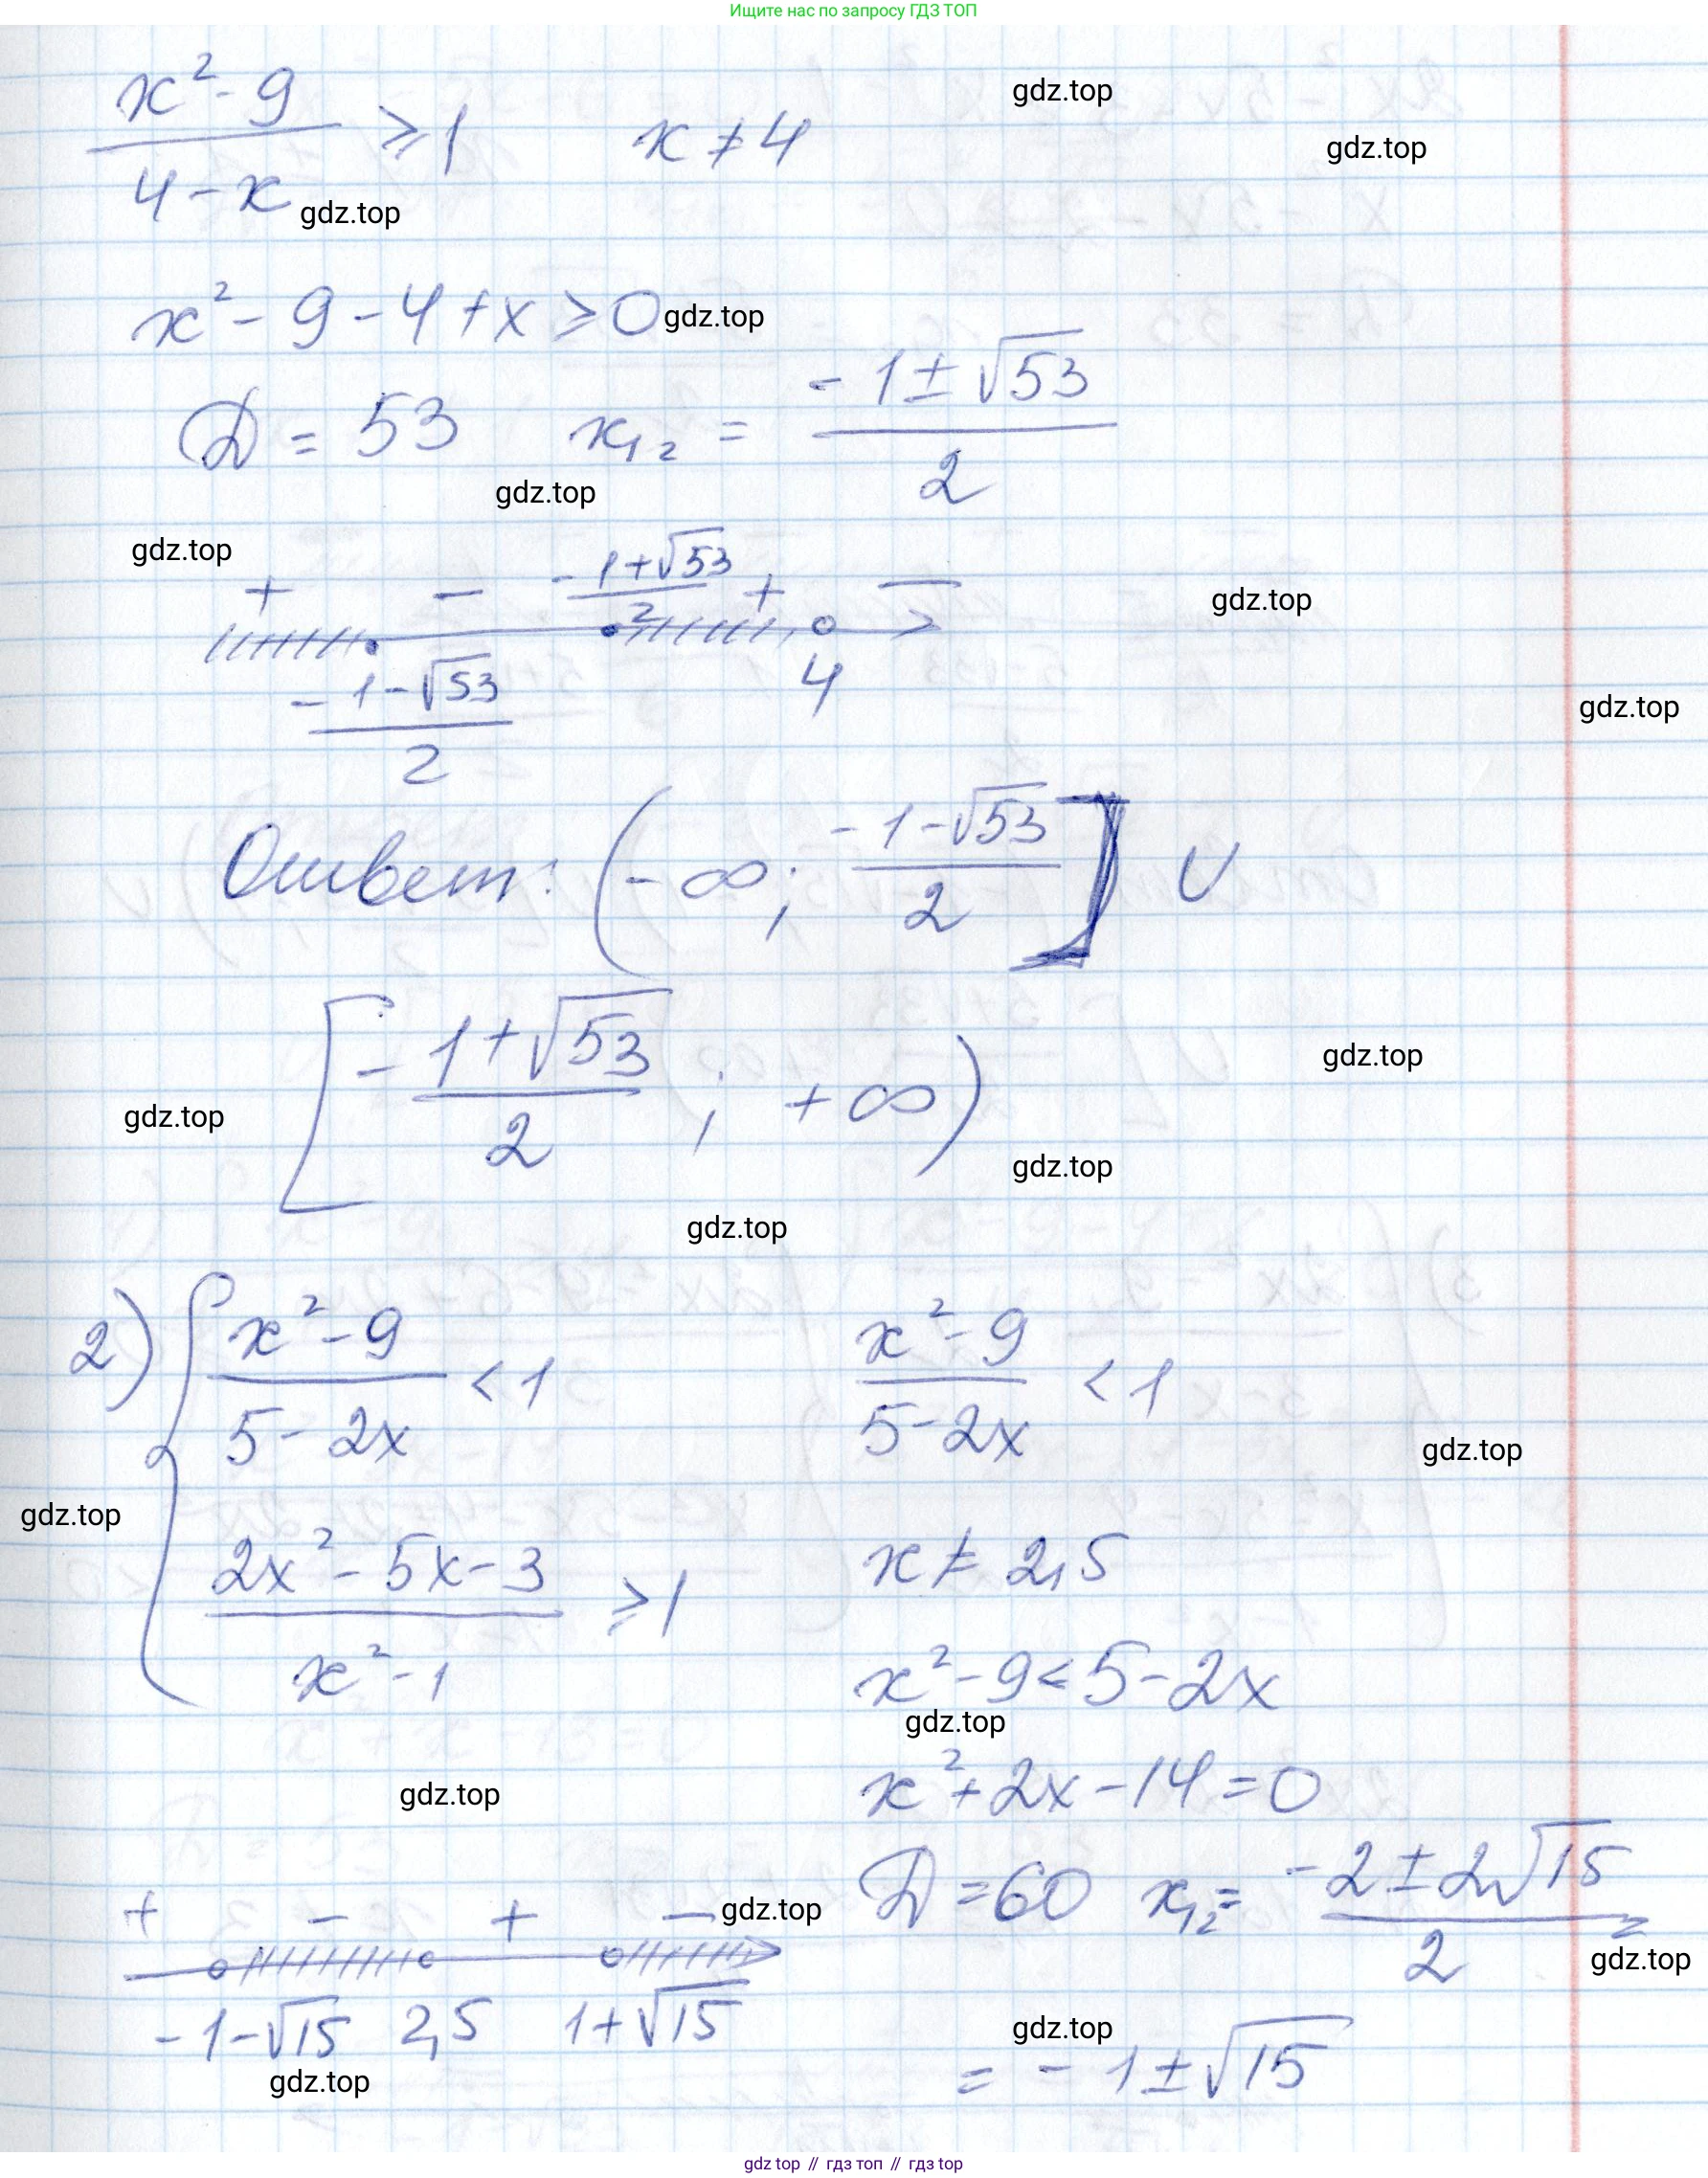 Ищите нас по запросу ГДЗ ТОП
(x² - 9)/(4 - x) ≥ 1    x ≠ 4
gdz.top
gdz.top
gdz.top
x² - 9 - 4 + x ≥ 0
gdz.top
D = 53    x₁₂ = (-1 ± √53)/2
gdz.top
gdz.top
+ - (-1+√53)/2 + -
gdz.top
(-1-√53)/2    4
gdz.top
Ответ: (-∞; (-1-√53)/2] ∪
[(-1+√53)/2; +∞)
gdz.top
gdz.top
gdz.top
gdz.top
2) { (x² - 9)/(5 - 2x) < 1    (x² - 9)/(5 - 2x) < 1
gdz.top
gdz.top
(2x² - 5x - 3)/(x² - 1) ≥ 1    x ≠ 2,5
x² - 9 < 5 - 2x
gdz.top
gdz.top
x² + 2x - 14 = 0
D = 60    x₁₂ = (-2 ± 2√15)/2
+ - + -
gdz.top
gdz.top
-1-√15    2,5    1+√15
gdz.top
= -1 ± √15
gdz.top
gdz top // гдз топ // gdz top